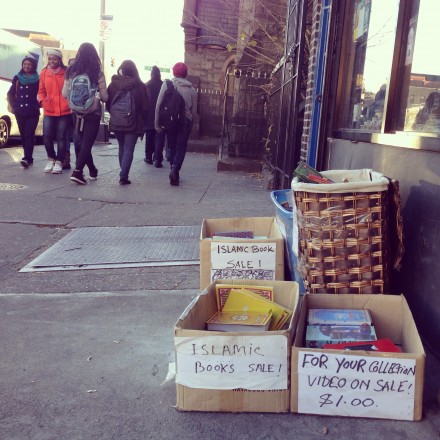 ISLAMIC BOOK
SALE!
ISLAMIC
BOOKS SALE!
FOR YOUR COLLECTION
VIDEO ON SALE!
$1.00